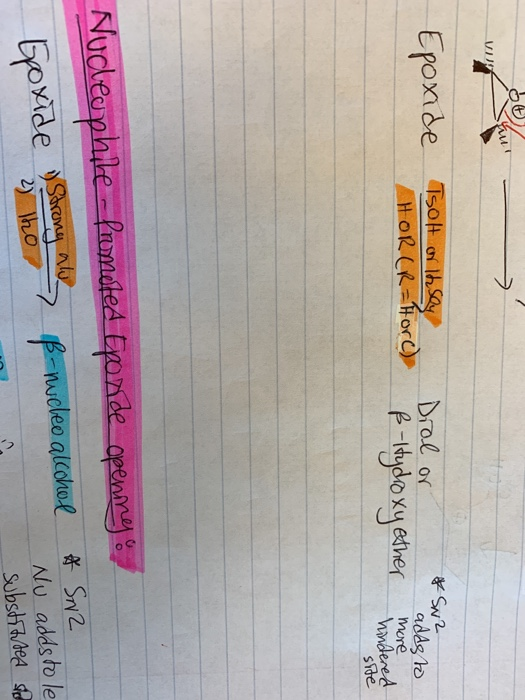 O⊕
Epoxide TsOH or H2SO4 Diol or * SN2
HOR (R = H or C) β-Hydroxy ether adds to
more
hindered
site
Nucleophile-Promoted Epoxide opening:
Epoxide 1) Strong nu β-nucleo alcohol * SN2
2) H2O Nu adds to le
substituted